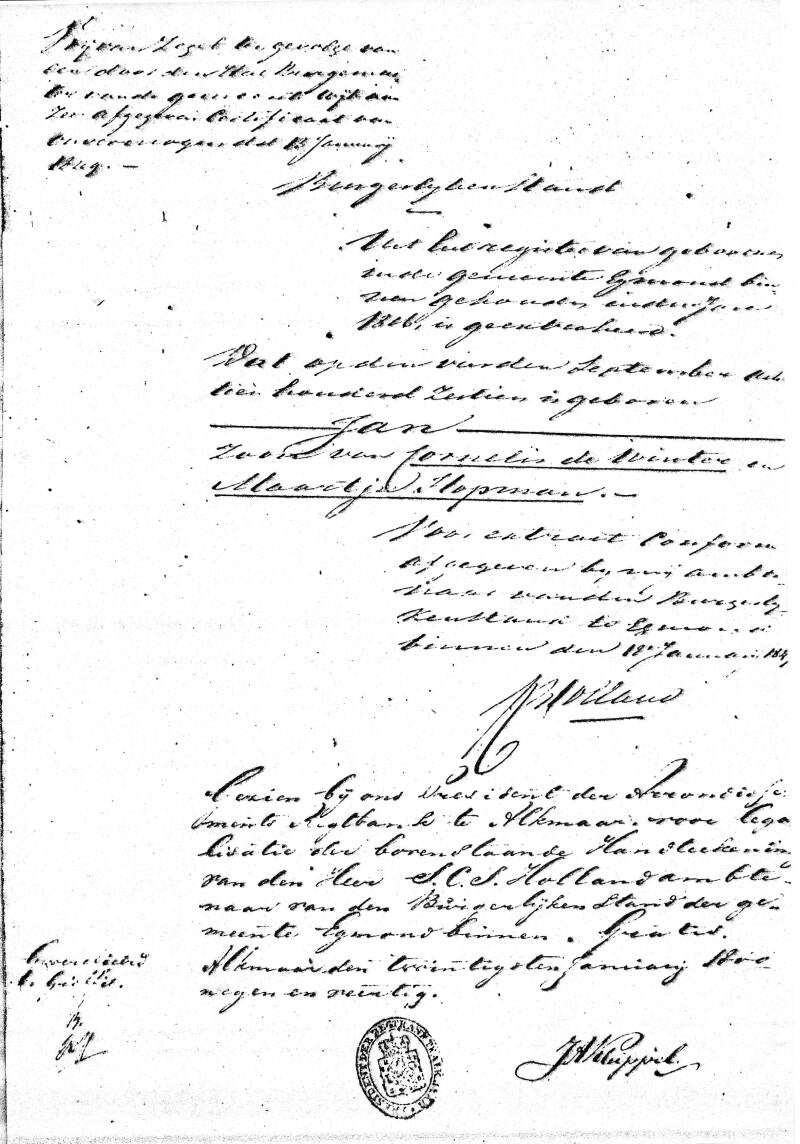 Vrij van Zegel ten gevolge van
een door den Heer Burgemees
ter van de gemeente Wijk aan
Zee afgegeven Certificaat van
onvermogen dd 13 Januarij
1849. —
Burgerlijken Stand
Uit het register van geborenen
in de gemeente Egmond bin-
nen gehouden in den Jare
1816, is geextraheerd.
Dat op den vierden September acht
tien honderd Zestien is geboren
Jan
Zoon van Cornelis de Winter en
Maartje Stopman. —
Voor extract Conform
afgegeven by mij ambte
naar van den Burgerly
kenstand te Egmond
binnen den 12n Januari
Holland
Gezien bij ons President der Arrondisse
ments Regtbank te Alkmaar voor lega
lisatie der bovenstaande Handteekening
van den Heer S. C. S. Holland ambte-
naar van den Burgerlijken Stand der ge-
meente Egmond binnen. Gratis.
Alkmaar den twintigsten Januarij 1800
negen en veertig.
Geregistreerd
PRESIDENT DER REGTBANK TE ALKMAAR
J A Kluppel